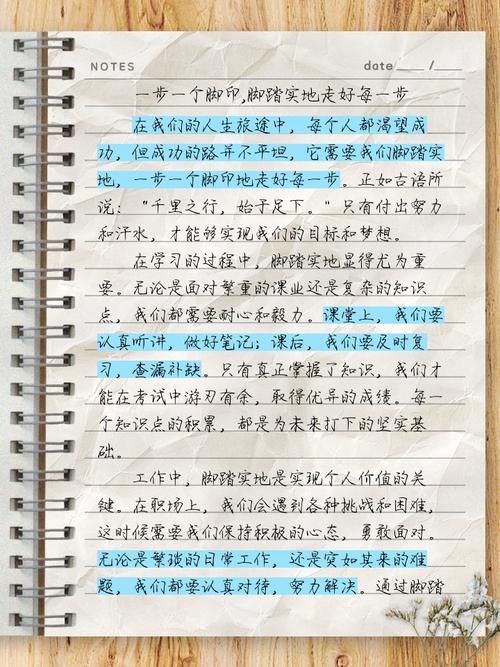 NOTES
date ___ / ___
一步一个脚印,脚踏实地走好每一步
在我们的人生旅途中，每个人都渴望成
功，但成功的路并不平坦，它需要我们脚踏实
地，一步一个脚印地走好每一步。正如古语所
说：“千里之行，始于足下。”只有付出努力
和汗水，才能够实现我们的目标和梦想。
在学习的过程中，脚踏实地显得尤为重
要。无论是面对繁重的课业还是复杂的知识
点，我们都需要耐心和毅力。课堂上，我们要
认真听讲，做好笔记；课后，我们要及时复
习，查漏补缺。只有真正掌握了知识，我们才
能在考试中游刃有余，取得优异的成绩。每一
个知识点的积累，都是为未来打下的坚实基
础。
工作中，脚踏实地是实现个人价值的关
键。在职场上，我们会遇到各种挑战和困难，
这时候需要我们保持积极的心态，勇敢面对。
无论是繁琐的日常工作，还是突如其来的难
题，我们都要认真对待，努力解决。通过脚踏